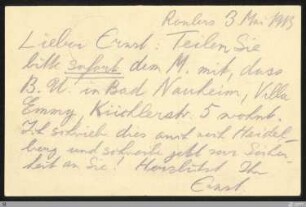 3 Mai 1913
Lieber Ernst: Teilen Sie
bitte sofort dem M. mit, dass
B. U. in Bad Nauheim, Villa
Emmy Küchlerstr. 5 wohnt.
Ich schrieb dies auch nach Heidel-
berg und schreibe jetzt zur Sicher-
heit an Sie! Herzlichst Ihr
Ernst